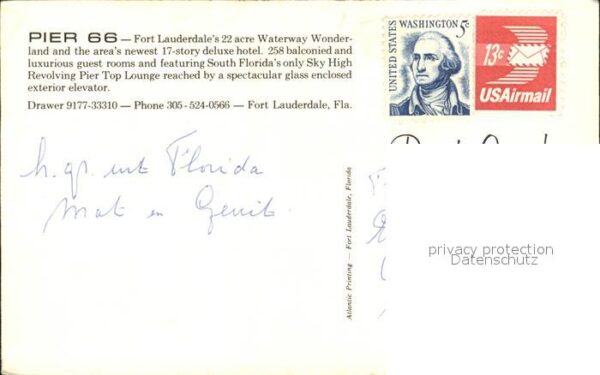 PIER 66 — Fort Lauderdale's 22 acre Waterway Wonder-
land and the area's newest 17-story deluxe hotel. 258 balconied and
luxurious guest rooms and featuring South Florida's only Sky High
Revolving Pier Top Lounge reached by a spectacular glass enclosed
exterior elevator.
Drawer 9177-33310 — Phone 305-524-0566 — Fort Lauderdale, Fla.
UNITED STATES
WASHINGTON 5¢
13¢
USAirmail
Florida
Atlantic Printing — Fort Lauderdale, Florida
privacy protection
Datenschutz